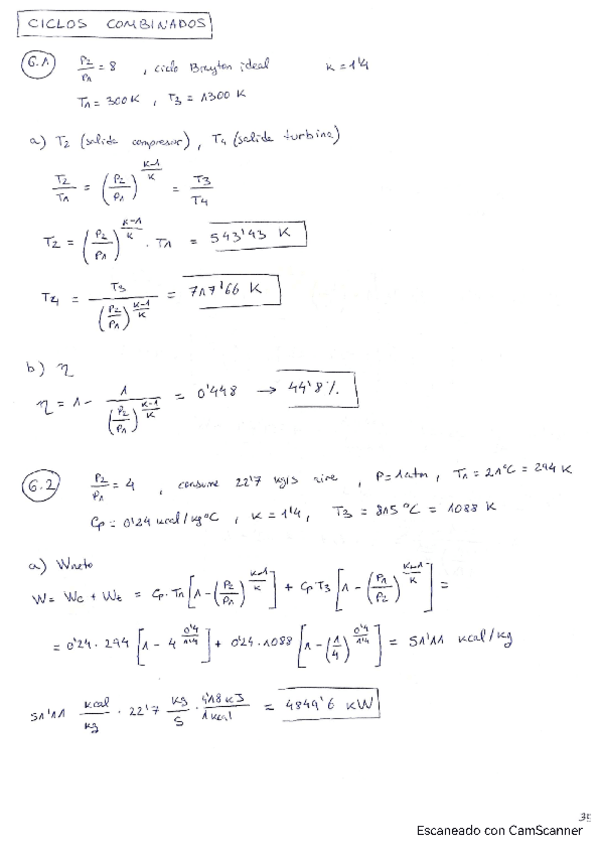 CICLOS COMBINADOS
6.1 P2/P1 = 8 , ciclo Brayton ideal K = 1'4
T1 = 300 K , T3 = 1300 K
a) T2 (salida compresor) , T4 (salida turbina)
T2/T1 = (P2/P1)^((K-1)/K) = T3/T4
T2 = (P2/P1)^((K-1)/K) · T1 = 543'43 K
T4 = T3 / (P2/P1)^((K-1)/K) = 717'66 K
b) η
η = 1 - 1 / (P2/P1)^((K-1)/K) = 0'448 → 44'8 %
6.2 P2/P1 = 4 , consume 22'7 kg/s aire , P = 1 atm , T1 = 21°C = 294 K
Cp = 0'24 kcal/kg°C , K = 1'4 , T3 = 815 °C = 1088 K
a) Wneto
W = Wc + Wt = Cp·T1 [1 - (P2/P1)^((K-1)/K)] + Cp·T3 [1 - (P1/P2)^((K-1)/K)] =
= 0'24 · 294 [1 - 4^(0'4/1'4)] + 0'24 · 1088 [1 - (1/4)^(0'4/1'4)] = 51'11 kcal/kg
51'11 kcal/kg · 22'7 kg/s · 4'18 kJ/1 kcal = 4849'6 kW
Escaneado con CamScanner